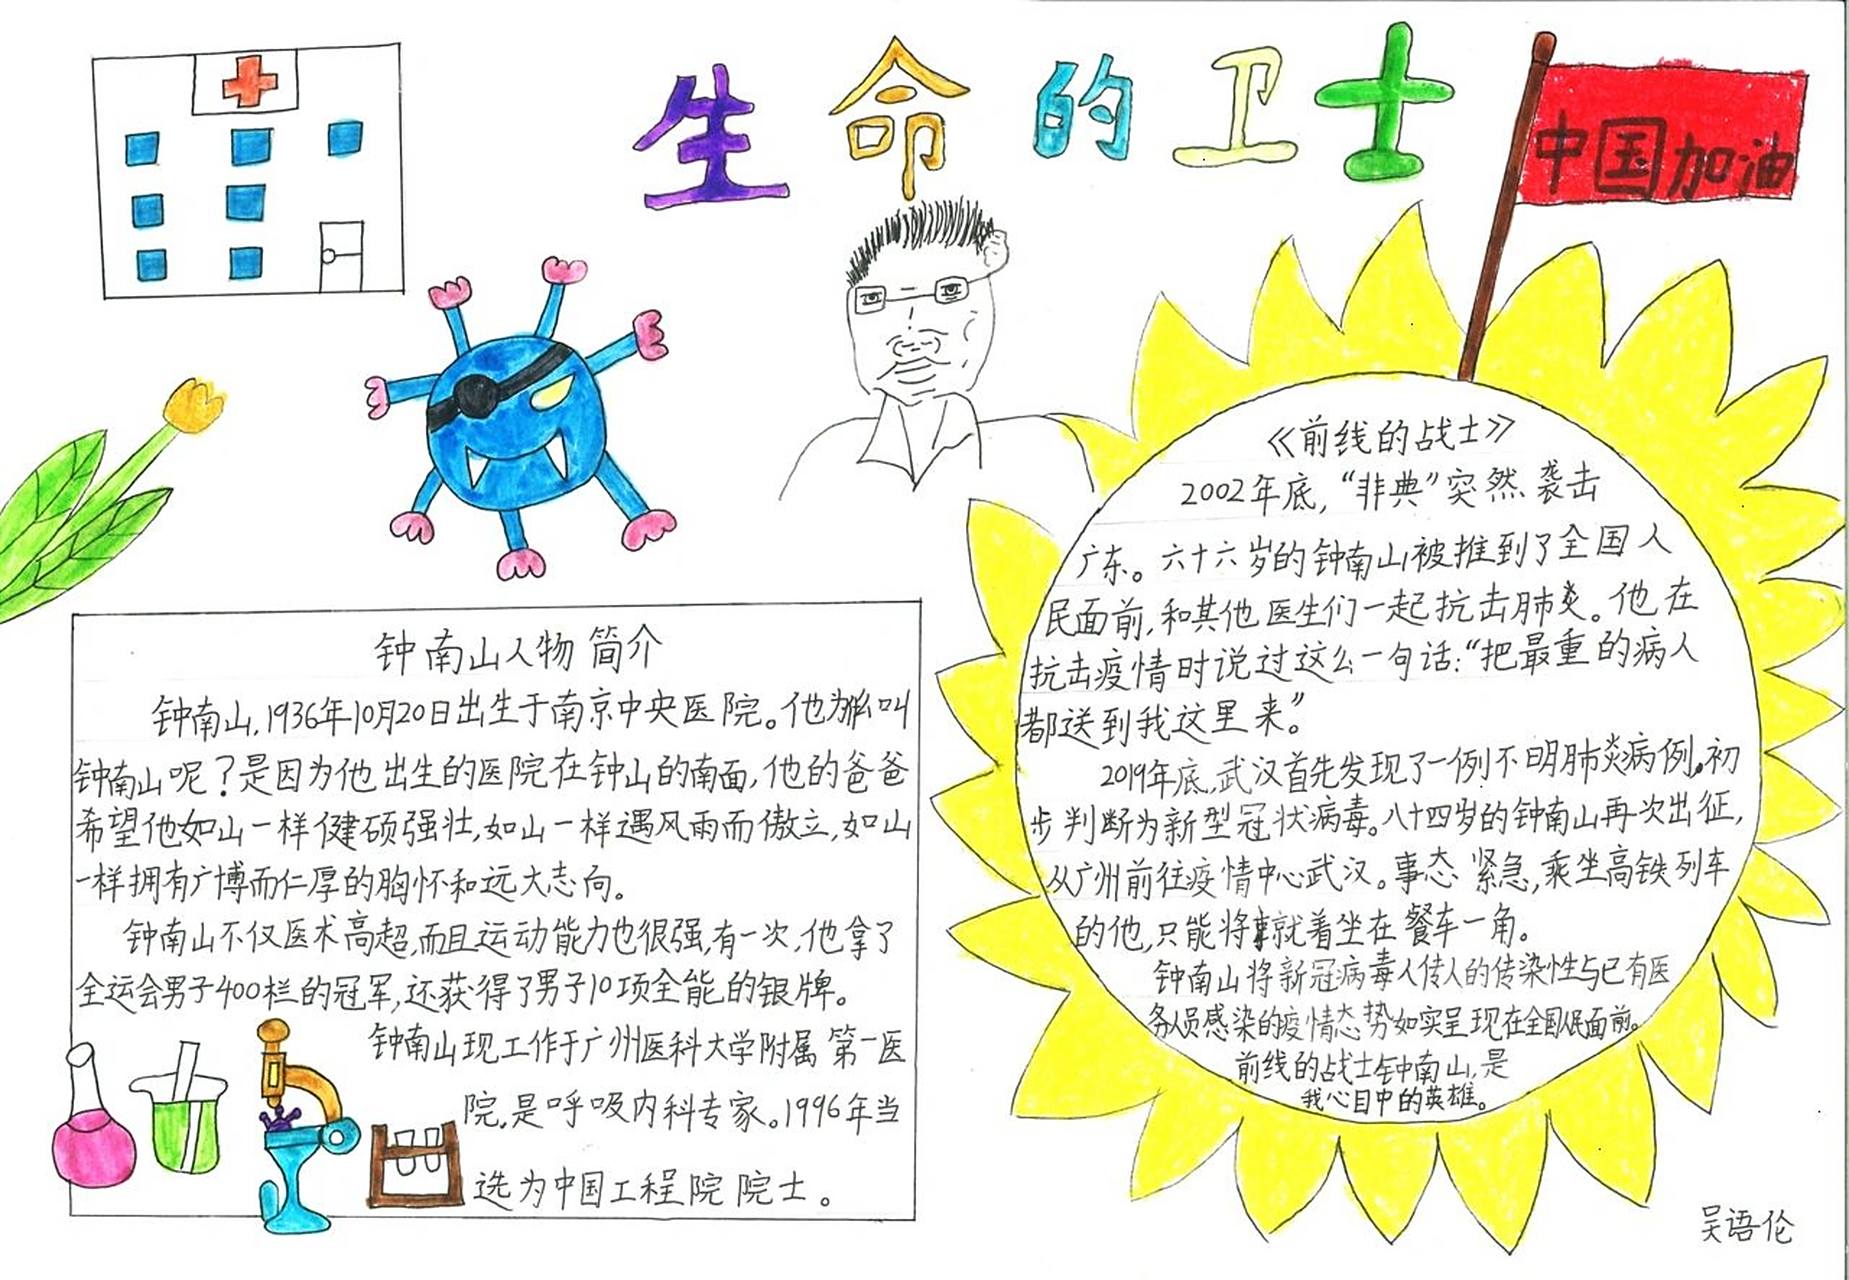 生命的卫士
中国加油
钟南山人物简介
钟南山,1936年10月20日出生于南京中央医院。他为什么叫
钟南山呢？是因为他出生的医院在钟山的南面,他的爸爸
希望他如山一样健硕强壮,如山一样遇风雨而傲立,如山
一样拥有广博而仁厚的胸怀和远大志向。
钟南山不仅医术高超,而且运动能力也很强,有一次,他拿了
全运会男子400栏的冠军,还获得了男子10项全能的银牌。
钟南山现工作于广州医科大学附属第一医
院,是呼吸内科专家。1996年当
选为中国工程院院士。
《前线的战士》
2002年底,“非典”突然袭击
广东。六十六岁的钟南山被推到了全国人
民面前,和其他医生们一起抗击肺炎。他在
抗击疫情时说过这么一句话:“把最重的病人
都送到我这里来。”
2019年底,武汉首先发现了一例不明肺炎病例,初
步判断为新型冠状病毒。八十四岁的钟南山再次出征,
从广州前往疫情中心武汉。事态紧急,乘坐高铁列车
的他,只能将就着坐在餐车一角。
钟南山将新冠病毒人传人的传染性与已有医
务人员感染的疫情态势如实呈现在全国人民面前。
前线的战士钟南山,是
我心目中的英雄。
吴语伦